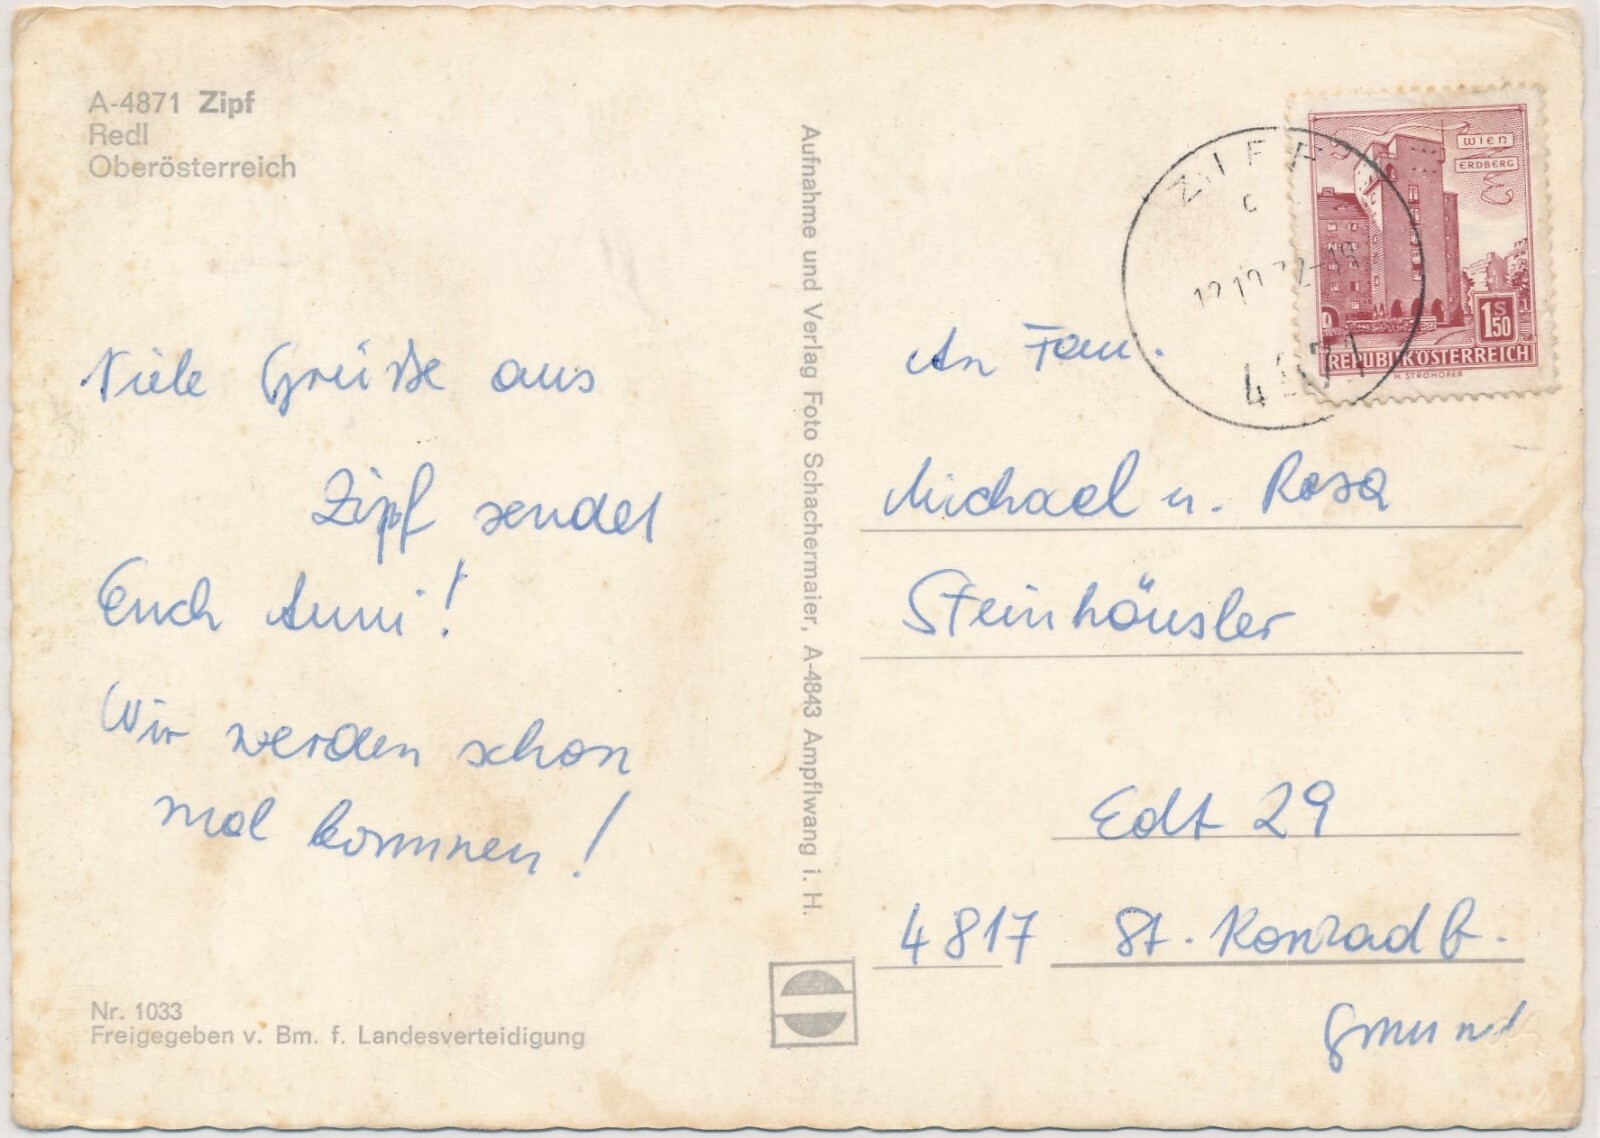 A-4871 Zipf
Redl
Oberösterreich
Viele Grüße aus
Zipf sendet
Euch Anni!
Wir werden schon
mal kommen!
Nr. 1033
Freigegeben v. Bm. f. Landesverteidigung
Aufnahme und Verlag Foto Schachermaier, A-4843 Ampflwang i. H.
ZIPF
4871
WIEN
ERDBERG
1S50
REPUBLIK ÖSTERREICH
H. STROHOFER
An Fam.
Michael u. Rosa
Steinhäusler
Edt 29
4817 St. Konrad b.
Gmund